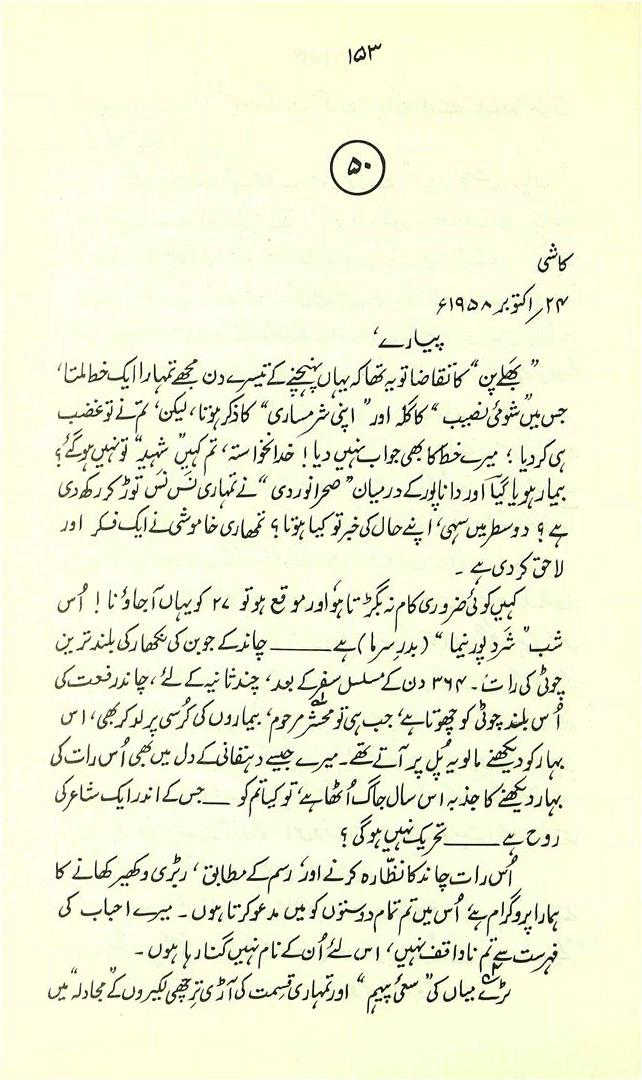 ۱۵۳
۵۰
کاشی
۲۴/ اکتوبر ۱۹۵۸ء
پیارے،
"بھَلے پن" کا تقاضا تو یہ تھا کہ یہاں پہنچنے کے تیسرے دن مجھے تمہارا ایک خط ملتا،
جس میں "شومیٔ نصیب" کا گلہ اور "اپنی شرمساری" کا ذکر ہوتا، لیکن، تم نے تو غضب
ہی کر دیا؛ میرے خط کا بھی جواب نہیں دیا! خدانخواستہ، تم کہیں "شہید" تو نہیں ہو گئے؟
بیمار ہو یا گیا اور داناپور کے درمیان "صحرا نوردی" نے تمہاری نَس نَس توڑ کر رکھ دی
ہے؟ دو سطر میں سہی، اپنے حال کی خبر تو کیا ہوتا؟ تمھاری خاموشی نے ایک فکر اور
لاحق کر دی ہے۔
کہیں کوئی ضروری کام نہ بگڑتا ہو اور موقع ہو تو ۲۷ کو یہاں آ جاؤ نا! اُس
شب "شَرد پورنیما" (بدرِ سرما) ہے ـــــــ چاند کے جوبن کی نکھار کی بلند ترین
چوٹی کی رات۔ ۳۶۴ دن کے مسلسل سفر کے بعد، چند ثانیہ کے لئے، چاند رفعت کی
اُس بلند چوٹی کو چھوتا ہے، جب ہی تو محشر مرحوم، بیماروں کی کُرسی پر لد کر بھی، اس
بہار کو دیکھنے مالویہ پُل پر آتے تھے۔ میرے جیسے دہقانی کے دل میں بھی اُس رات کی
بہار دیکھنے کا جذبہ اس سال جاگ اُٹھا ہے، تو کیا تم کو ـــــ جس کے اندر ایک شاعر کی
روح ہے ـــــــ تحریک نہیں ہو گی؟
اُس رات چاند کا نظّارہ کرنے اور، رسم کے مطابق، ربڑی و کھیر کھانے کا
ہمارا پروگرام ہے، اُس میں تم تمام دوستوں کو میں مدعو کرتا ہوں۔ میرے احباب کی
فہرست سے تم ناواقف نہیں، اس لئے اُن کے نام نہیں گنا رہا ہوں۔
بڑے میاں کی "سعیٔ پیہم" اور تمہاری قسمت کی آڑی ترچھی لکیروں کے "مجادلہ" میں